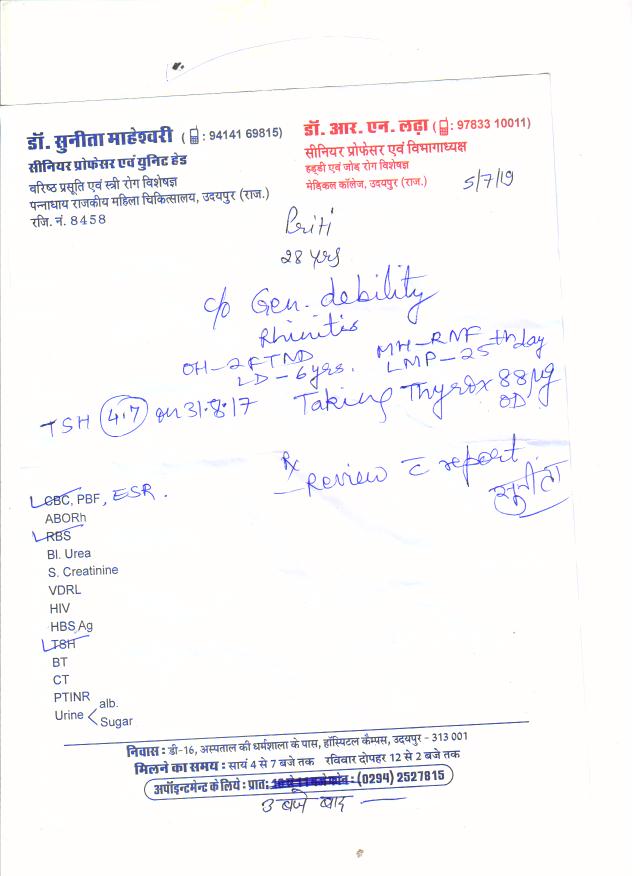 डॉ. सुनीता माहेश्वरी (: 94141 69815)
सीनियर प्रोफेसर एवं युनिट हेड
वरिष्ठ प्रसूति एवं स्त्री रोग विशेषज्ञ
पन्नाधाय राजकीय महिला चिकित्सालय, उदयपुर (राज.)
रजि. नं. 8458
डॉ. आर. एन. लढ़ा (: 97833 10011)
सीनियर प्रोफेसर एवं विभागाध्यक्ष
हड्डी एवं जोड़ रोग विशेषज्ञ
मेडिकल कॉलेज, उदयपुर (राज.)
5/7/19
Priti
28 yrs
c/o Gen. debility
Rhinitis
OH-2FTND
LD-6yrs.
MH-RNF
LMP-25th day
TSH 4.7 on 31.8.17
Taking Thyrox 88µg
OD
Rx
Review c̄ report.
सुनीता
CBC, PBF, ESR.
ABORh
RBS
Bl. Urea
S. Creatinine
VDRL
HIV
HBS Ag
TSH
BT
CT
PTINR
Urine < alb.
Sugar
निवास : डी-16, अस्पताल की धर्मशाला के पास, हॉस्पिटल कैम्पस, उदयपुर - 313 001
मिलने का समय : सायं 4 से 7 बजे तक रविवार दोपहर 12 से 2 बजे तक
अपॉइन्टमेन्ट के लिये : प्रात: फोन : (0294) 2527815
3 बजे बाद